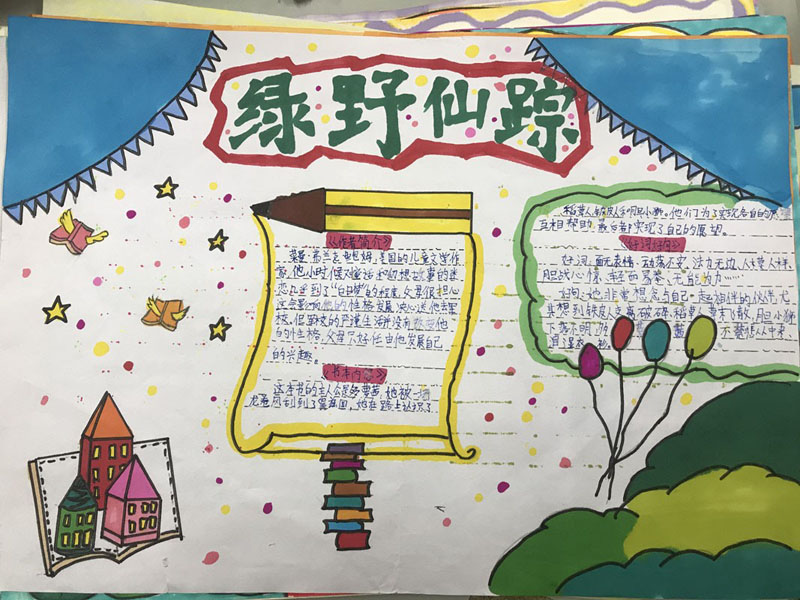 绿野仙踪
《作者简介》
莱曼·弗兰克·鲍姆,美国的儿童文学作
家,他小时候对童话和幻想故事的迷
恋几乎到了“白日梦”的程度,父母很担心
这会影响他的性格发展,决心送他去军
校。但野校的严谨生活并没有改变他
的性格,父母只好任由他发展自己
的兴趣。
《书本内容》
这本书的主人公是多萝茜,她被一场
龙卷风刮到了蒙奇国,她在路上认识了
稻草人、铁皮人和胆小狮。他们为了实现各自的愿
互相帮助,最后都实现了自己的愿望。
《好词好句》
好词:面无表情、动荡不安、法力无边、
胆战心惊、无能为力……
好句:她非常想念与自己一起相伴的伙伴,尤
其想到铁皮人支离破碎,稻草人